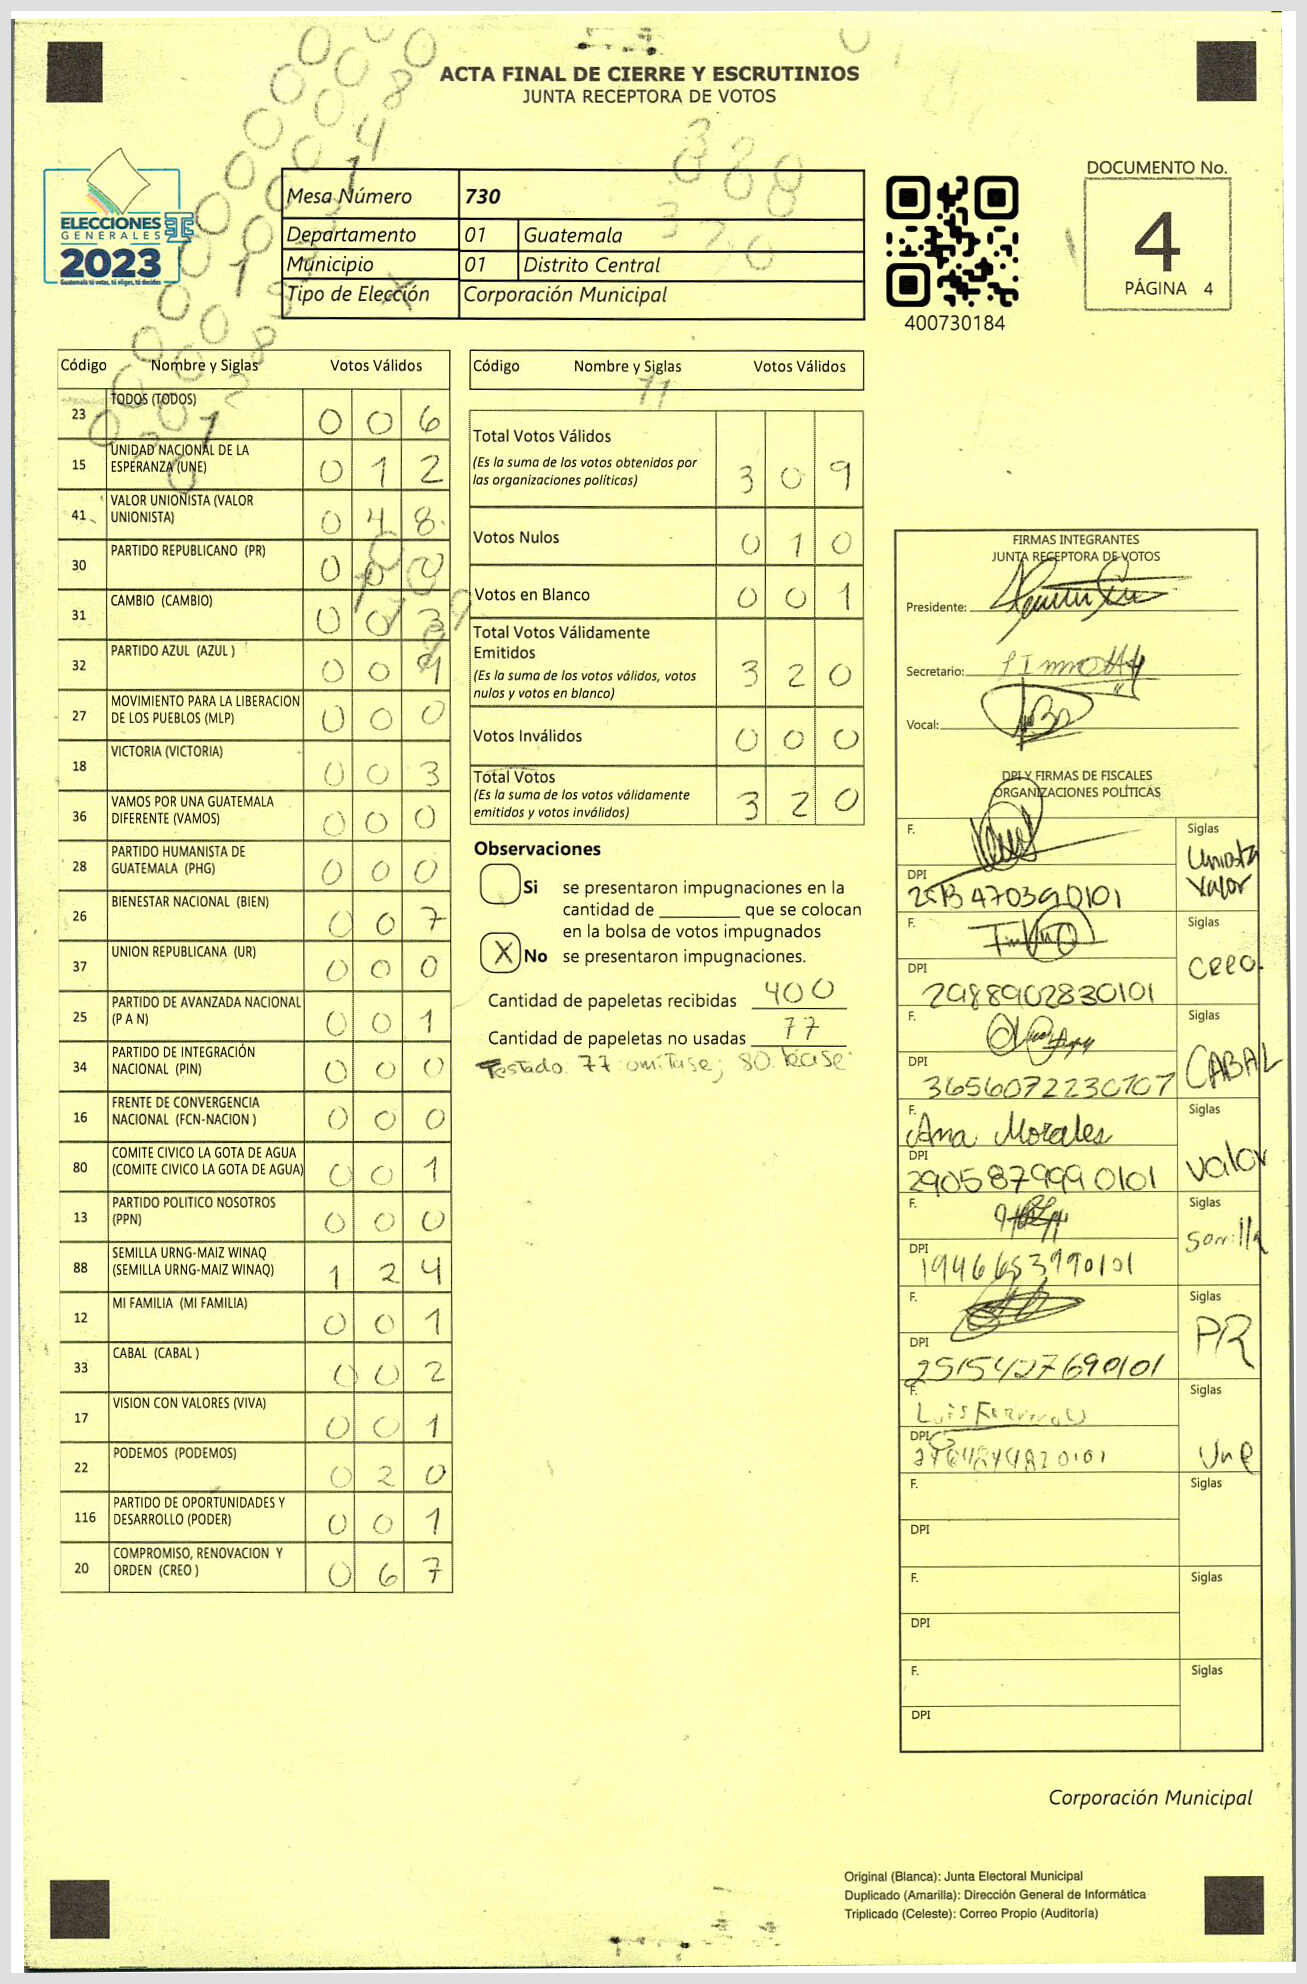 ACTA FINAL DE CIERRE Y ESCRUTINIOS
JUNTA RECEPTORA DE VOTOS
ELECCIONES
GENERALES
2023
Guatemala tú votas, tú eliges, tú decides
Mesa Número 730
Departamento 01 Guatemala
Municipio 01 Distrito Central
Tipo de Elección Corporación Municipal
400730184
DOCUMENTO No.
4
PÁGINA 4
Código Nombre y Siglas Votos Válidos
23 TODOS (TODOS) 0 0 6
15 UNIDAD NACIONAL DE LA ESPERANZA (UNE) 0 1 2
41 VALOR UNIONISTA (VALOR UNIONISTA) 0 4 8
30 PARTIDO REPUBLICANO (PR) 0 0 0
31 CAMBIO (CAMBIO) 0 0 3
32 PARTIDO AZUL (AZUL ) 0 0 9
27 MOVIMIENTO PARA LA LIBERACION DE LOS PUEBLOS (MLP) 0 0 0
18 VICTORIA (VICTORIA) 0 0 3
36 VAMOS POR UNA GUATEMALA DIFERENTE (VAMOS) 0 0 0
28 PARTIDO HUMANISTA DE GUATEMALA (PHG) 0 0 0
26 BIENESTAR NACIONAL (BIEN) 0 0 7
37 UNION REPUBLICANA (UR) 0 0 0
25 PARTIDO DE AVANZADA NACIONAL (P A N) 0 0 1
34 PARTIDO DE INTEGRACIÓN NACIONAL (PIN) 0 0 0
16 FRENTE DE CONVERGENCIA NACIONAL (FCN-NACION ) 0 0 0
80 COMITE CIVICO LA GOTA DE AGUA (COMITE CIVICO LA GOTA DE AGUA) 0 0 1
13 PARTIDO POLITICO NOSOTROS (PPN) 0 0 0
88 SEMILLA URNG-MAIZ WINAQ (SEMILLA URNG-MAIZ WINAQ) 1 2 4
12 MI FAMILIA (MI FAMILIA) 0 0 1
33 CABAL (CABAL ) 0 0 2
17 VISION CON VALORES (VIVA) 0 0 1
22 PODEMOS (PODEMOS) 0 2 0
116 PARTIDO DE OPORTUNIDADES Y DESARROLLO (PODER) 0 0 1
20 COMPROMISO, RENOVACION Y ORDEN (CREO ) 0 6 7
Código Nombre y Siglas Votos Válidos
Total Votos Válidos 3 0 9
(Es la suma de los votos obtenidos por
las organizaciones políticas)
Votos Nulos 0 1 0
Votos en Blanco 0 0 1
Total Votos Válidamente
Emitidos 3 2 0
(Es la suma de los votos válidos, votos
nulos y votos en blanco)
Votos Inválidos 0 0 0
Total Votos 3 2 0
(Es la suma de los votos válidamente
emitidos y votos inválidos)
Observaciones
Si se presentaron impugnaciones en la
cantidad de ________ que se colocan
en la bolsa de votos impugnados
X No se presentaron impugnaciones.
Cantidad de papeletas recibidas 400
Cantidad de papeletas no usadas 77
Testado: 77 omitase; 80 léase
FIRMAS INTEGRANTES
JUNTA RECEPTORA DE VOTOS
Presidente:
Secretario:
Vocal:
DPI Y FIRMAS DE FISCALES
ORGANIZACIONES POLÍTICAS
F. Siglas
Valor
DPI
F. Siglas
Creo
DPI 2988902830101
F. Siglas
CABAL
DPI 3656072230707
F. Ana Morales Siglas
Valor
DPI 2905879990101
F. Siglas
DPI
F. Siglas
PR
DPI 2515427690101
F. Siglas
Une
DPI
F. Siglas
DPI
F. Siglas
DPI
F. Siglas
DPI
Corporación Municipal
Original (Blanca): Junta Electoral Municipal
Duplicado (Amarilla): Dirección General de Informática
Triplicado (Celeste): Correo Propio (Auditoría)